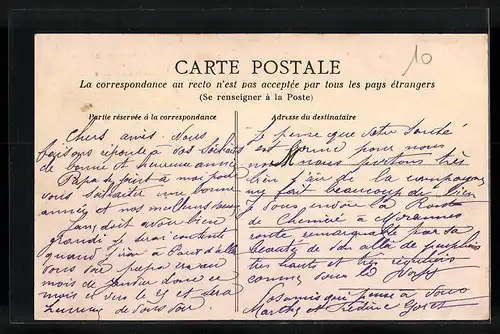 10
CARTE POSTALE
La correspondance au recto n'est pas acceptée par tous les pays étrangers
(Se renseigner à la Poste)
Partie réservée à la correspondance
Chers amis. Nous
faisons réponse à vos souhaits
de bonne et heureuse année
Papa se joint à moi pour
vous souhaiter une bonne
année et nos meilleurs
doit avoir bien
grandi je serai contente
quand j'irai à Paris
vous voir
mois de janvier
mois et vers le et sera
heureuse de vous voir
Adresse du destinataire
Je pense que votre santé
est bonne pour nous
nous nous portons très
bien l'air de la campagne
me fait beaucoup de bien
Je vous envoie la Route
de Chemiré à Morannes
route remarquable par sa
beauté de son allée de peupliers
très hauts et très réguliers
comme vous le
Vos amis qui pense à vous
Marthe et